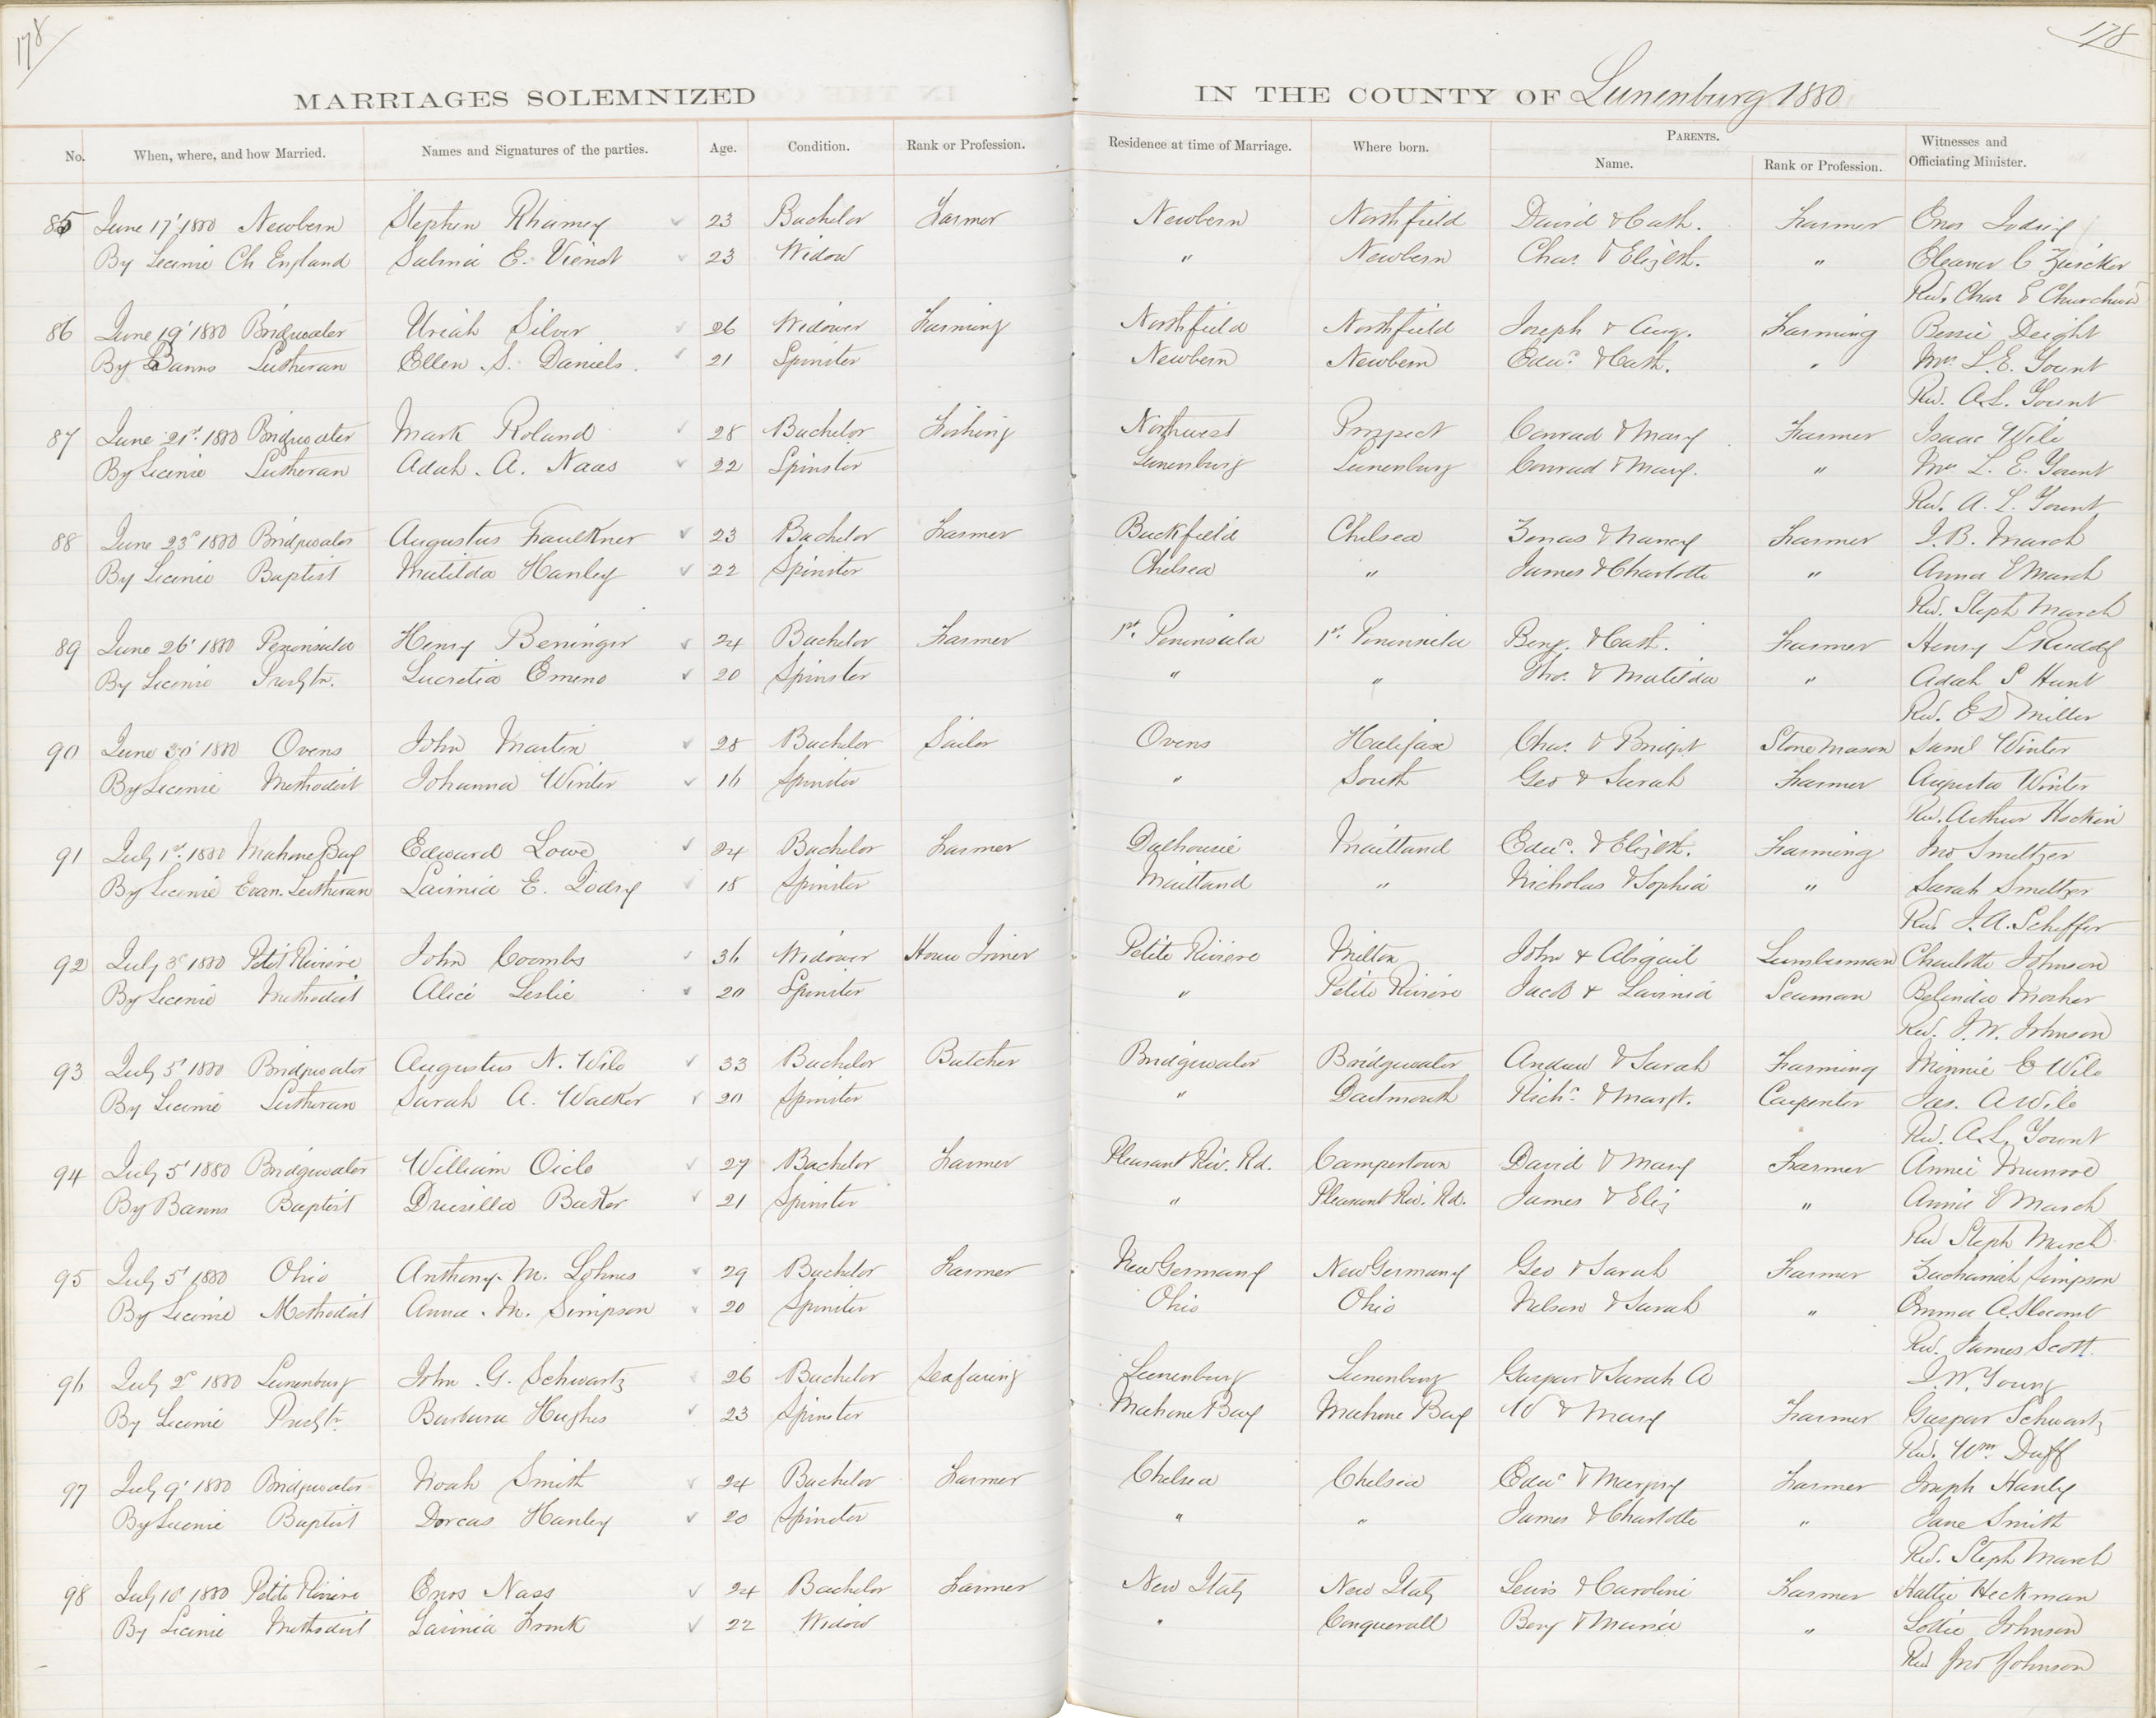 178
178
MARRIAGES SOLEMNIZED IN THE COUNTY OF Lunenburg 1880
No. When, where, and how Married. Names and Signatures of the parties. Age. Condition. Rank or Profession. Residence at time of Marriage. Where born. PARENTS. Name. Rank or Profession. Witnesses and Officiating Minister.
85 June 17' 1880 Newbern Stephen Rhamey 23 Bachelor Farmer Newbern Northfield David & Cath. Farmer Enos
By Licence Ch England Salina E. Vienot 23 Widow " Newbern Chas. & Elizth. " Eleanor C Zwicker
Rev. Chas E Churchward
86 June 19' 1880 Bridgwater Uriah Silver 26 Widower Farming Northfield Northfield Joseph & Aug. Farming Bessie Deight
By Banns Lutheran Ellen S. Daniels. 21 Spinster Newbern Newbern Edwd. & Cath. " Mrs L. E. Yount
Rev. A. L. Yount
87 June 21st. 1880 Bridgwater Mark Roland 28 Bachelor Fishing Northwest Prospect Conrad & Mary Farmer Isaac Wile
By Licence Lutheran Adah. A. Naas 22 Spinster Lunenburg Lunenburg Conrad & Mary. " Mrs L. E. Yount
Rev. A. L. Yount
88 June 23d 1880 Bridgwater Augustus Faulkner 23 Bachelor Farmer Buckfield Chelsea Zenas & Nancy Farmer J. B. March
By Licence Baptist Matilda Hanley 22 Spinster Chelsea " James & Charlotte " Anna E March
Rev. Steph March
89 June 26' 1880 Peninsula Henry Beninger 24 Bachelor Farmer 1st. Peninsula 1st. Peninsula Benj. & Cath. Farmer Henry L Rudolf
By Licence Presbtn. Lucretia Emeno 20 Spinster " " Thos. & Matilda " Adah S Hunt
Rev. E D Miller
90 June 30' 1880 Ovens John Martin 28 Bachelor Sailor Ovens Halifax Chas. & Bridgt Stone Mason Saml Winter
By Licence Methodist Johanna Winter 16 Spinster " South Geo & Sarah Farmer Augusta Winter
Rev. Arthur Hockin
91 July 1st. 1880 Mahone Bay Edward Lowe 24 Bachelor Farmer Dalhousie Maitland Edwd. & Elizth. Farming Jno Smeltzer
By Licence Evan. Lutheran Lavinia E. 18 Spinster Maitland " Nicholas & Sophia " Sarah Smeltzer
Rev J. A. Scheffer
92 July 3d 1880 Petit Riviere John Coombs 36 Widower House Joiner Petite Riviere Milton John & Abigail Lumberman Charlotte Johnson
By Licence Methodist Alice Leslie 20 Spinster " Petite Riviere Jacob & Lavinia Seaman Belinda Mosher
Rev. J. W. Johnson
93 July 5' 1880 Bridgwater Augustus N. Wile 33 Bachelor Butcher Bridgewater Bridgewater Andrew & Sarah Farming Minnie E Wile
By Licence Lutheran Sarah A. Walker 20 Spinster " Dartmouth Richd. & Margt. Carpenter Jas. A Wile
Rev. A. L. Yount
94 July 5' 1880 Bridgewater William Oicle 27 Bachelor Farmer Pleasant Riv. Rd. Camperdown David & Mary Farmer Annie Munroe
By Banns Baptist Drusilla Baker 21 Spinster " Pleasant Riv. Rd. James & Eliz " Annie E March
Rev Steph March
95 July 5' 1880 Ohio Anthony. M. Lohnes 29 Bachelor Farmer New Germany New Germany Geo & Sarah Farmer Zachariah Simpson
By Licence Methodist Anna. M. Simpson 20 Spinster Ohio Ohio Nelson & Sarah " Emma A. Slocomb
Rev. James Scott.
96 July 2d 1880 Lunenburg John. G. Schwartz 26 Bachelor Seafaring Lunenburg Lunenburg Gaspar & Sarah A J. W. Young
By Licence Presbtn. Barbara Hughes 23 Spinster Mahone Bay Mahone Bay W & Mary Farmer Gaspar Schwartz
Rev. Wm. Duff
97 July 9' 1880 Bridgwater Noah Smith 24 Bachelor Farmer Chelsea Chelsea Edwd & Margry Farmer Joseph Hanly
By Licence Baptist Dorcas Hanley 20 Spinster " " James & Charlotte " Jane Smith
Rev. Steph March
98 July 10' 1880 Petite Riviere Enos Nass 24 Bachelor Farmer New Italy New Italy Lewis & Caroline Farmer Hattie Heckman
By Licence Methodist Lavinia Fronk 22 Widow " Conquerall Benj & Maria " Lottie Johnson
Rev Jno Johnson